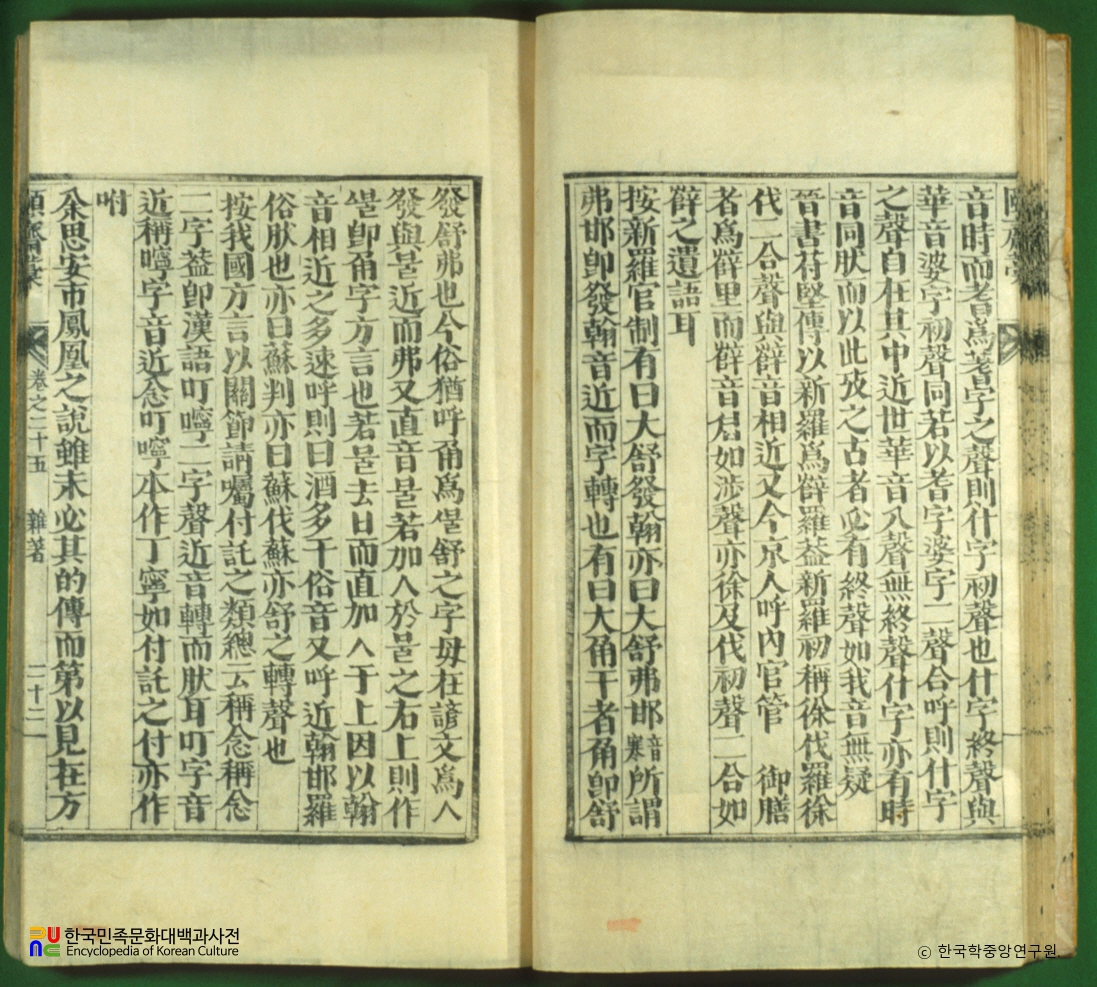 頤齋藁
音時而耆爲蓍字之聲則什字初聲也什字終聲與
華音婆字初聲同若以耆字婆字二聲合呼則什字
之聲自在其中近世華音入聲無終聲什字亦有時
音同肰而以此攷之古者必有終聲如我音無疑
晉書苻堅傳以新羅爲辥羅葢新羅初稱徐伐羅徐
代二合聲與辥音相近又今京人呼內官管 御膳
者爲辥里而辥音如涉聲亦徐及代初聲二合如
辥之遺語耳
按新羅官制有曰大舒發翰亦曰大舒弗邯音寒所謂
弗邯卽發翰音近而字轉也有曰大角干者角卽舒
發舒弗也今俗猶呼角爲ᄲᅮᆯ舒之字母在諺文爲ㅅ
發與불近而弗又直音불若加ㅅ於불之右上則作
ᄲᅮᆯ卽角字方言也若불去ㅂ而直加ㅅ于上因以翰
音相近之多速呼則曰酒多干俗音又呼近翰邯羅
俗肰也亦曰蘇判亦曰蘇伐蘇亦舒之轉聲也
按我國方言以關節請囑付託之類總云稱念稱念
二字葢卽漢語叮嚀二字聲近音轉而肰耳叮字音
近稱嚀字音近念叮嚀本作丁寧如付託之付亦作
咐
余思安市鳳凰之說雖未必其的傳而第以見在方
頤齋藁 卷之二十五 雜著 二十二
한국민족문화대백과사전
Encyclopedia of Korean Culture
© 한국학중앙연구원